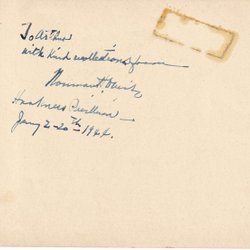 To Arthur
with kind recollections from
Harkness Pavilion
Jany 2-20th 1944.